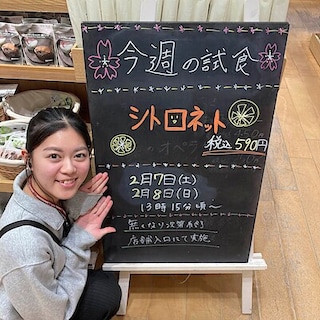 今週の試食
シトロネット
のオペラ
税込590円
2月7日(土)
2月8日(日)
13時15分頃～
無くなり次第終了
店舗入口にて実施